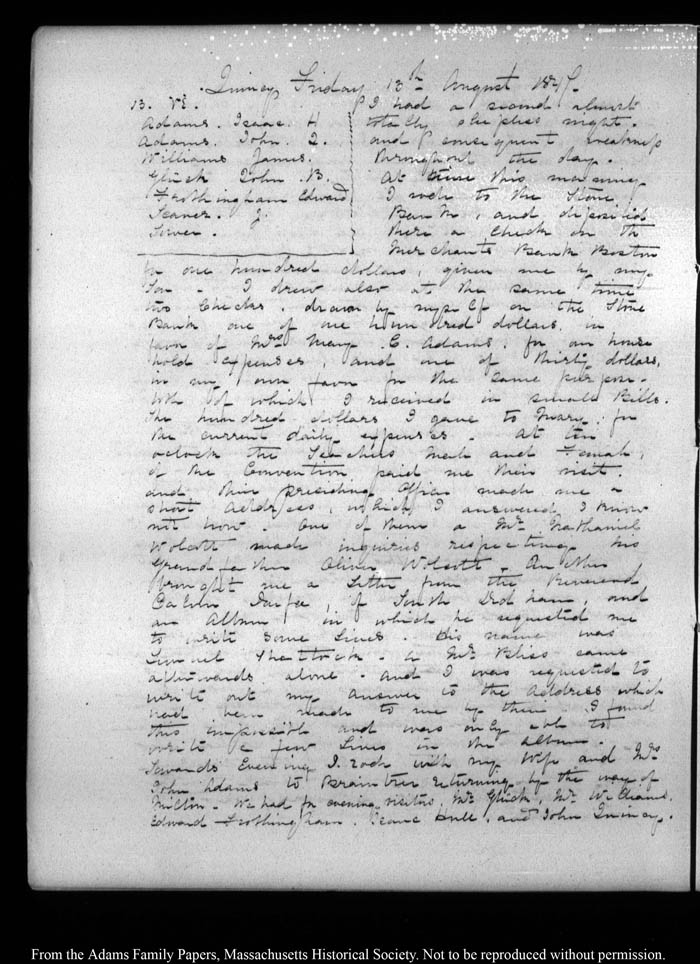 Quincy Friday 13th August 1847.
13. VI.
Adams. Isaac H
Adams. John. Q.
Williams James.
Glück John. B.
Frothingham Edward
Seaver. J.
Sower.
I had a second almost
totally sleepless night.
and consequent weakness
throughout the day.
At this morning
I rode to the Stone
Bank, and deposited
there a check on the
Merchants Bank Boston
for one hundred dollars, given me by my
Son - I drew also at the same time
two Checks. drawn by myself on the Stone
Bank one of one hundred dollars, in
favor of Mrs Mary. C. Adams. for our house
hold expenses, and one of thirty dollars,
in my own favor for the same purpose.
both of which I received in small Bills.
The hundred dollars I gave to Mary. for
the current daily expenses - At ten
oclock the Teachers Male and Female,
of the Convention paid me their visit.
and their presiding Officer made me a
short Address, which I answered I know
not how. One of them a Mr Nathaniel
Wolcott made inquiries respecting his
Grandfather Oliver Wolcott - Another
brought me a Letter from the Reverend
Calvin Durfee, of South Dedham, and
an Album in which he requested me
to write some Lines. His name was
Lemuel Shattuck - a Mr Bliss came
afterwards alone - and I was requested to
write out my answer to the address which
had been made to me by them. I found
this impossible and was only able to
write a few Lines in the album.
Towards Evening I rode with my Wife and Mrs
John Adams to Braintree returning by the way of
Milton - We had for evening visitors, Mr Glück, Mr Williams.
Edward Frothingham. Isaac Hull. and John Quincy.
From the Adams Family Papers, Massachusetts Historical Society. Not to be reproduced without permission.